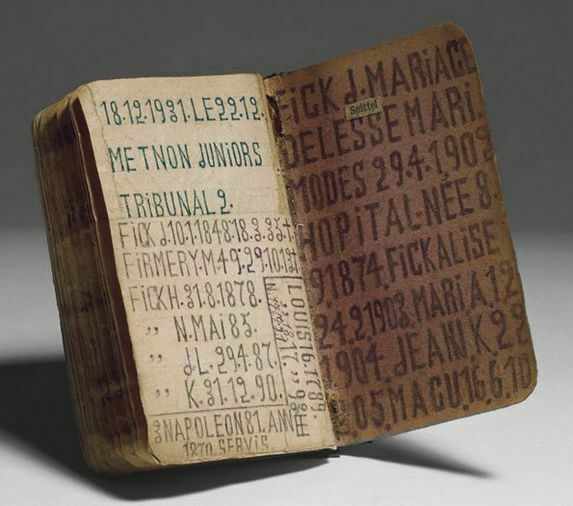 18.12.1931. LE 22.12.
METNON JUNIORS
TRIBUNAL 2.
FICK J.10.1.1848.18.3.
FIRMERY.M.49.29.10.
FICK H.31.8.1878.
,, N.MAI 83.
,, J.L. 29.4.87.
,, K.31.12.90.
LOUIS 16.
3 NAPOLEON 81. ANNÉE
1870 SERVIS
FICK J. MARIAGE
Spittel
DELESSE MARI
MODES 29.4.1902
HOPITAL-NÉE 8.
9.1874. FICK ALISE
24.2.1903. MARIA.12
1904. JEAN.K.29
05. MACU.16.6.10